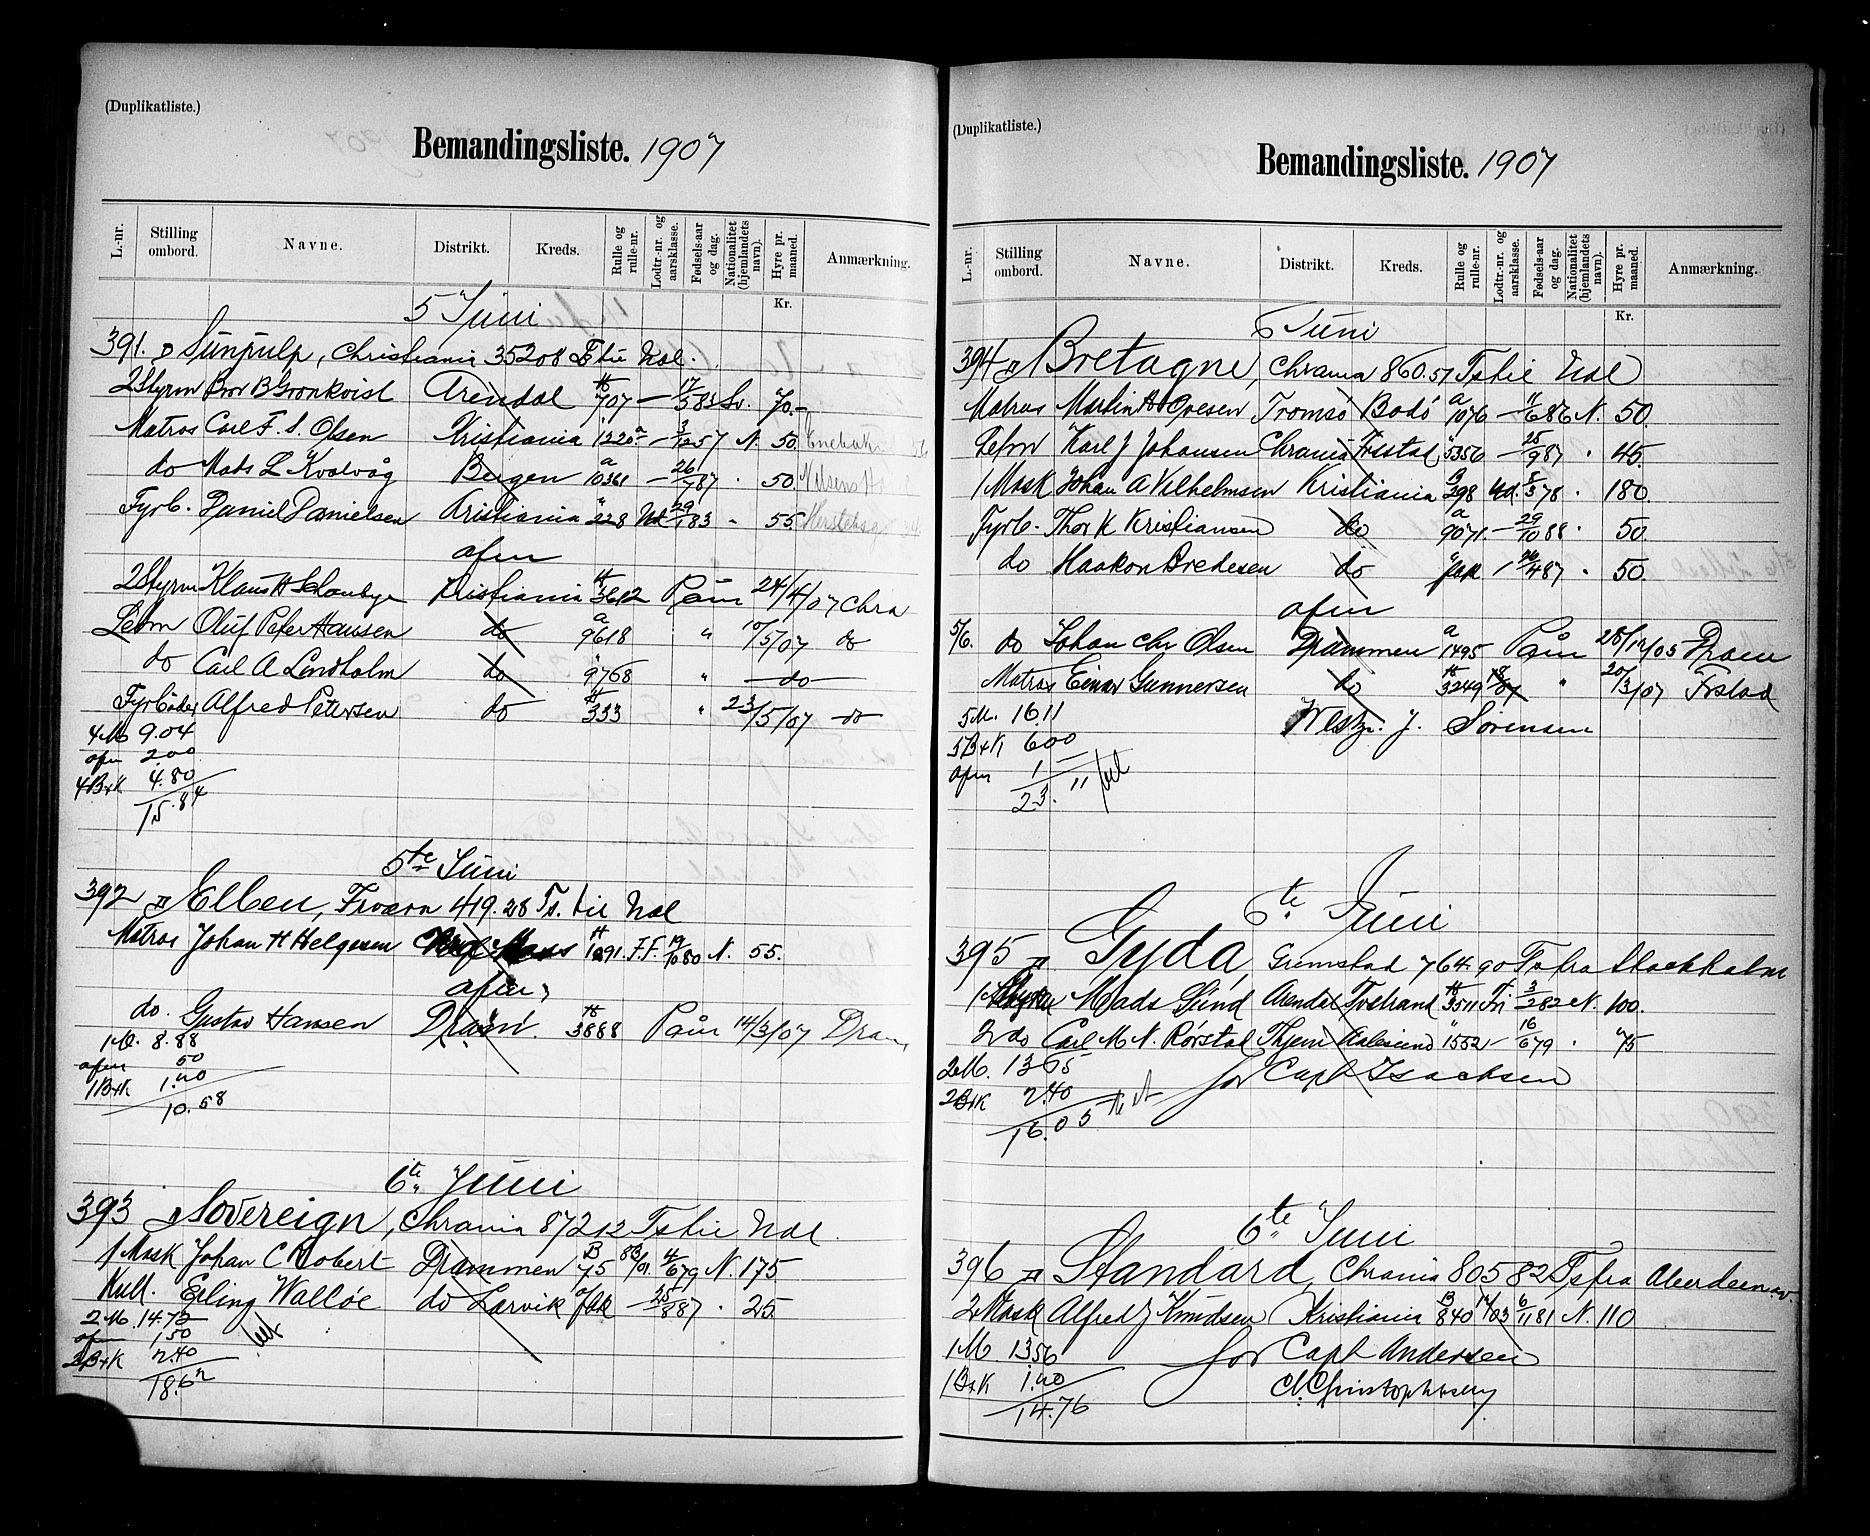 (Duplikatliste.)
Bemandingsliste. 1907
L.-nr. Stilling ombord. Navne. Distrikt. Kreds. Rulle og rulle-nr. Lodtr.-nr. og aarsklasse. Fødsels-aar og dag. Nationalitet (hjemlandets navn). Hyre pr. maaned. Anmærkning.
Kr.
5 Juni
391. D Sunpulp, Christiania 35208 Ts til Udl.
2 Styrm Bror B Gronkvist Arendal H 707 — 17/5 83 Sv. 70.-
Matros Carl F. S. Olsen Kristiania 1220 a — 3/12 57 N. 50.
do Mads L Kvalvåg Bergen a 10361 — 26/7 87 . 50.
Fyrb. Daniel Danielsen Kristiania " 228 Ud 29/1 83 . 55
afm
2 Styrm Klaus H Schonbye Kristiania H 3612 Påm 24/4/07 Chra
Letm Oluf Peter Hansen do a 9618 " 10/5/07 do
do Carl A Lindholm do " 9768 " — do —
Fyrbøder Alfred Petersen do H 333 " 23/5/07 do
4 M 9.04
afm 2.00
4 B+K 4.80
15.84
5te Juni
392 D Elben, Tværa 419.28 Ts. til Udl
Matros Johan H Helgesen H 1091 F.F. 19/10 80 N. 55.
afm,
do. Gustav Hansen Dram. H 3888 Påm 14/3/07 Dram,
1 M. 8.88
afm 50
1 B+K 1.20
10.58
6te Juni
393 D Sovereign, Chrania 872 12 Ts til Udl.
1 Mask Johan C Robert Drammen B 75 83/01. 4/6 79 N. 175
Kull. Erling Walløe do Larvik a — 25/8 87 . 25.
2 M. 14.72
afm 1,50
2 B+K 2.40
18.62
(Duplikatliste.)
Bemandingsliste. 1907
L.-nr. Stilling ombord. Navne. Distrikt. Kreds. Rulle og rulle-nr. Lodtr.-nr. og aarsklasse. Fødsels-aar og dag. Nationalitet (hjemlandets navn). Hyre pr. maaned. Anmærkning.
Kr.
6 Juni
394 D Bretagne, Chrania 860.57 Ts til Udl
Matros Martin A Ovesen Tromsø Bodø a 1076 — 11/6 86 N. 50.
Letm Karl J Johansen Chrania Frstad " 5356 — 25/9 87 . 45.
1 Mask Johan A Vilhelmsen Kristiania B 398 Ud. 8/5 78 . 180.
Fyrb. Thor K Kristiansen do a 9071. — 29/10 88 . 50.
do Haakon Bredesen do " 1 26/4 87 . 50.
afm
5/6. do Johan Chr Olsen Drammen a 1495 Påm 28/12/05 Dram
Matros Einar Gunnersen do H 3249 " 20/3/07 Frstad
5 M. 16.11
5 B+K 600
afm 1
23.11
J. Sørensen
6te Juni
395 D Gyda, Grimstad 764.90 Ts fra Stockholm
1 Styrm Mads Lund Arendal Tvestrand H 3511 Fri 3/2 82 N. 100.
2 do Carl M N. Rørstad Thjem Aalesund " 1552 — 16/6 79 . 75
2 M. 13.65
2 B+K 2.40
16.05
for Capt Isachsen
6te Juni
396 D Standard, Chrania 805 82 Ts fra Aberdeen
2 Mask Alfred J Knudsen Kristiania B 840 /03 6/11 81 N. 110
1 M. 13.56
1 B+K 1.20
14.76
for Capt Andersen